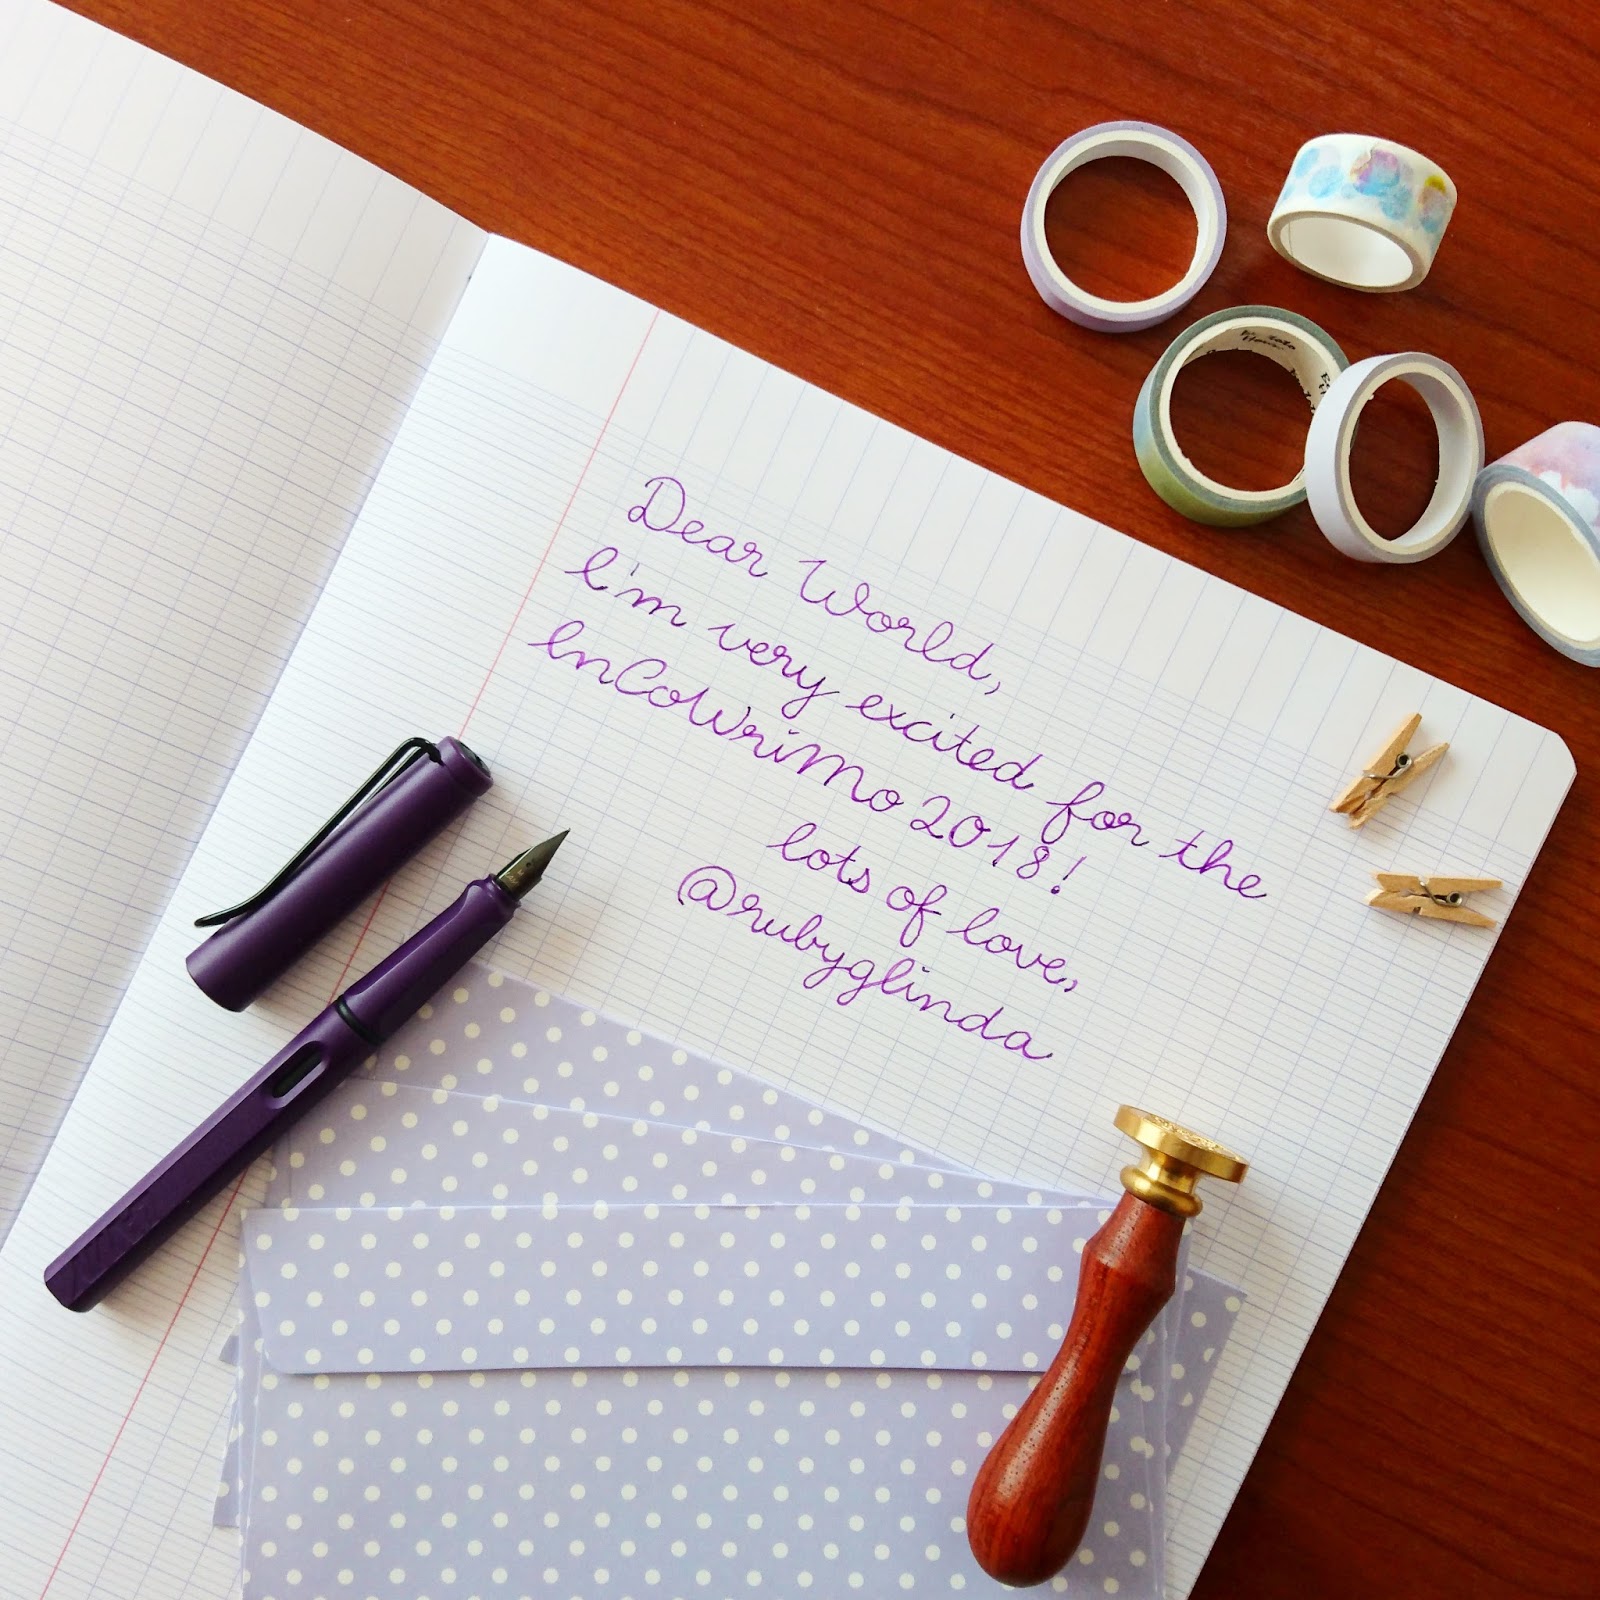 Dear World,
I'm very excited for the
InCoWriMo 2018!
lots of love,
@rubyglinda